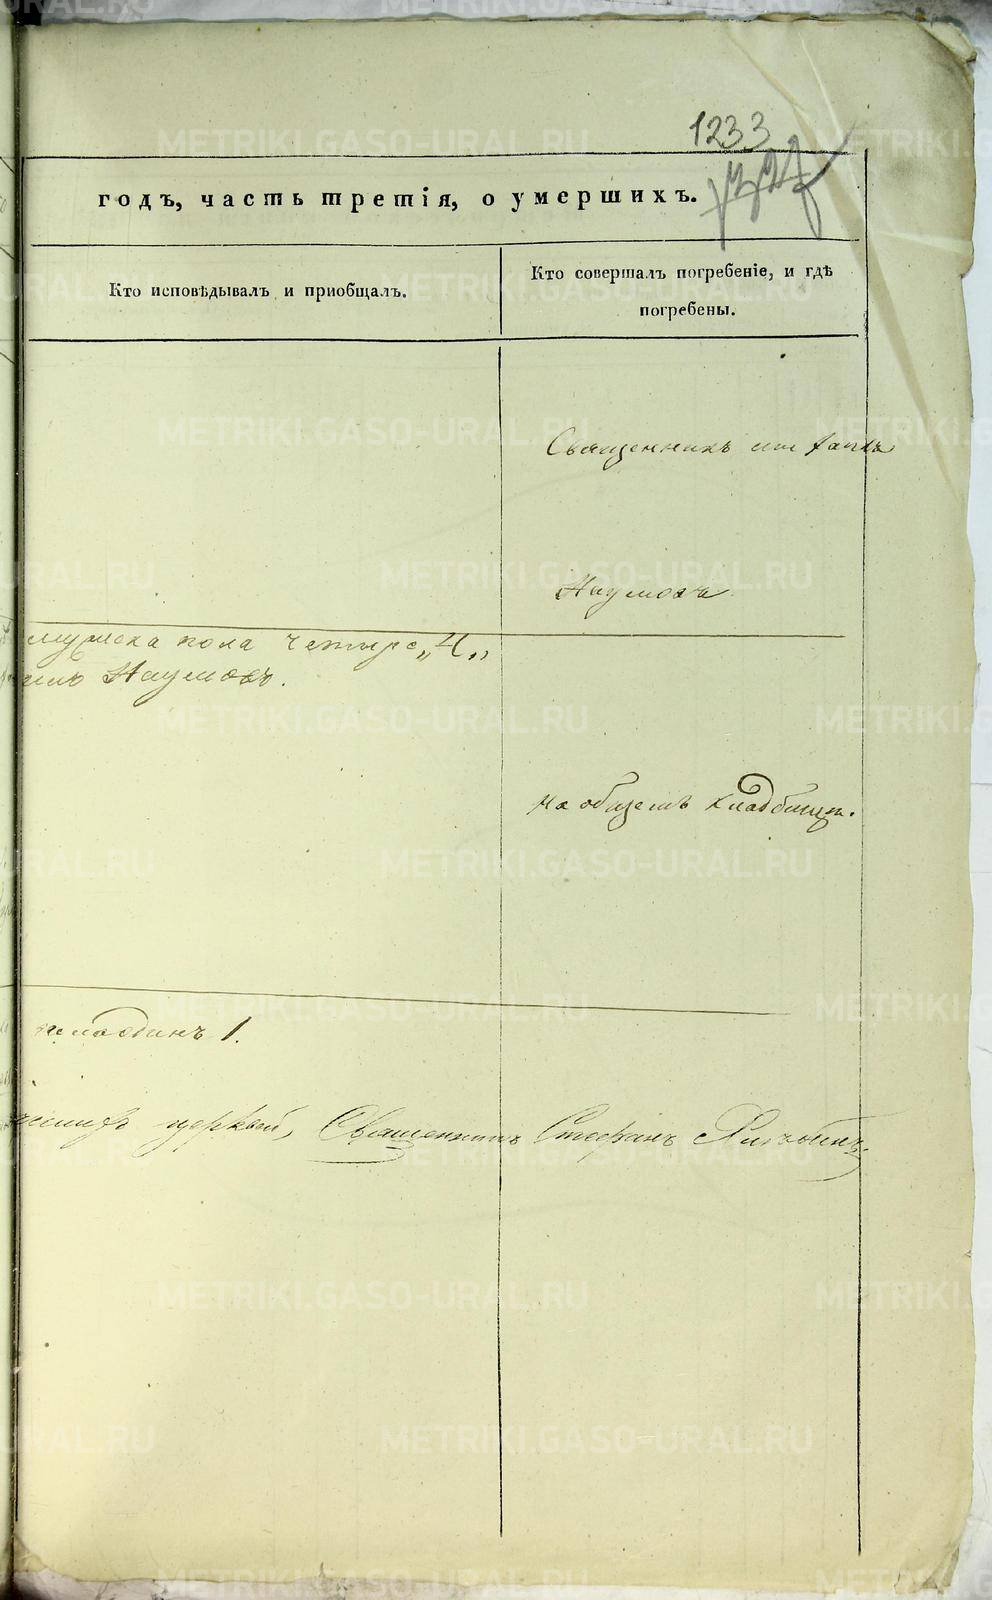 1233
годъ, часть третія, о умершихъ.
Кто исповѣдывалъ и приобщалъ.
Кто совершалъ погребеніе, и гдѣ
погребены.
Священникъ
Наумовъ
мужеска пола четыре „4„
Наумовъ.
на общемъ кладбищѣ.
1.
церквей, Священникъ Стефанъ
METRIKI.GASO-URAL.RU